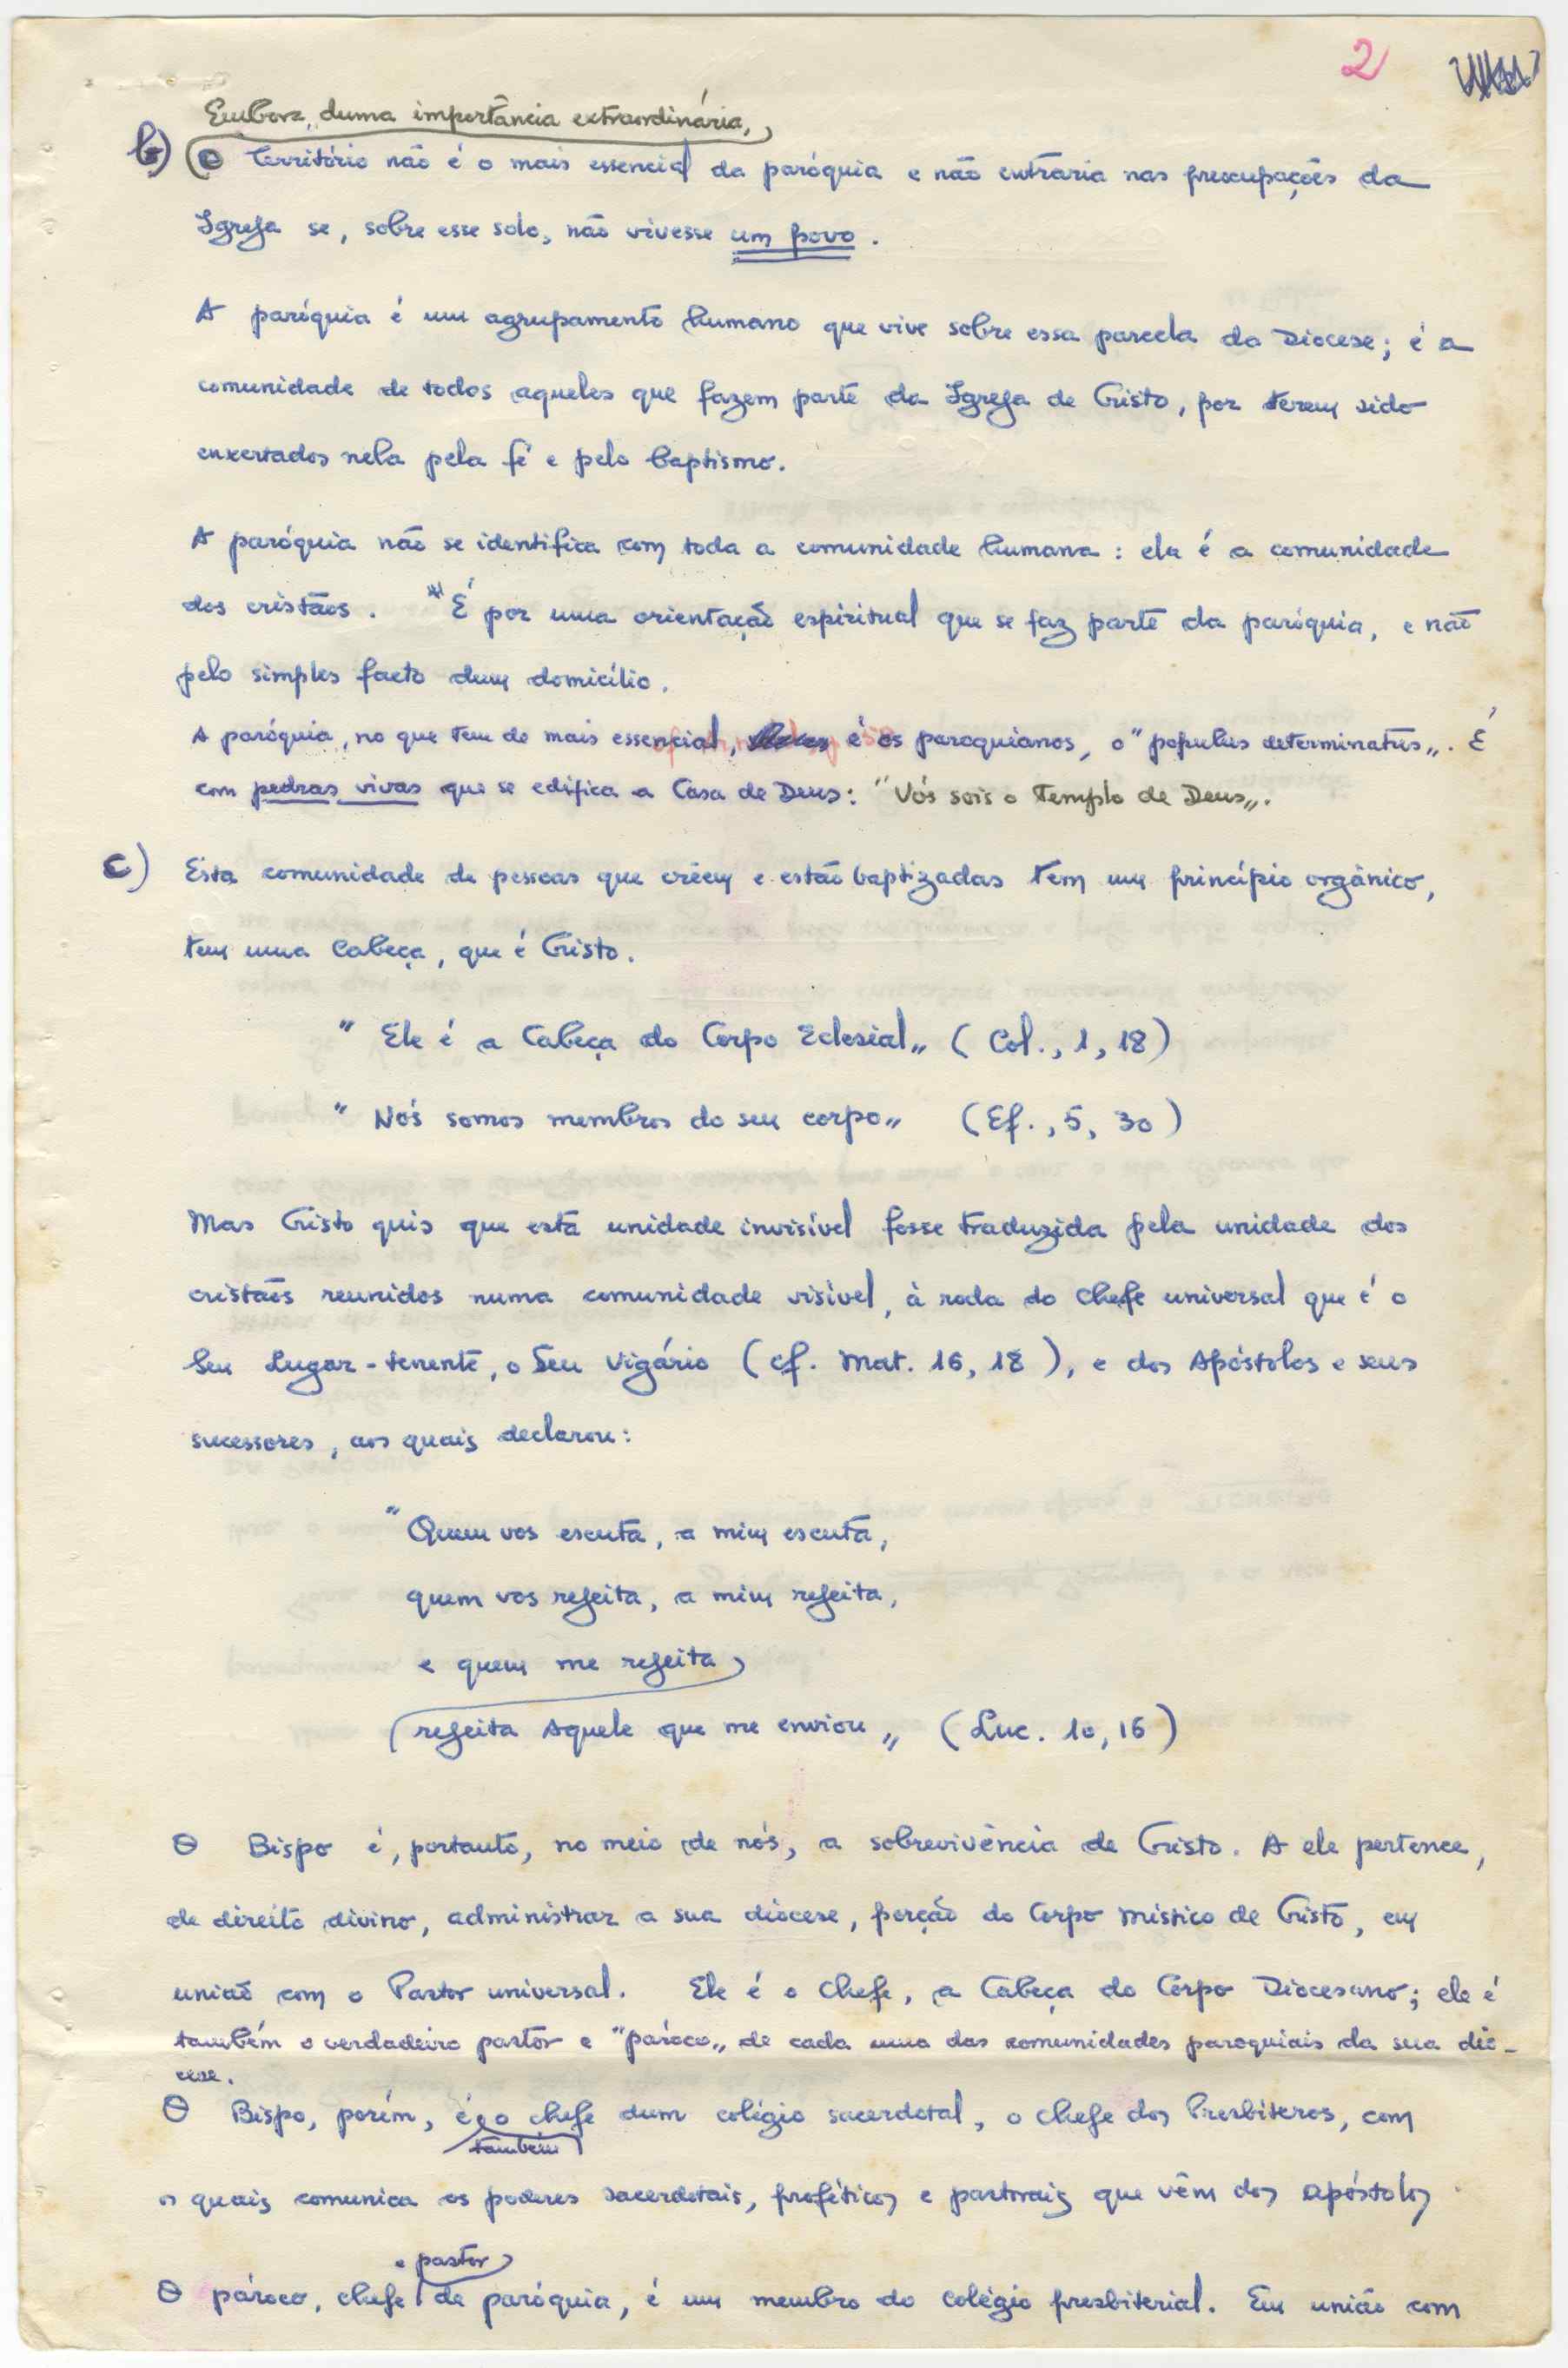 2
Embora, duma importância extraordinária,
b) o território não é o mais essencial da paróquia e não entraria nas preocupações da
Igreja se, sobre esse solo, não vivesse um povo.
A paróquia é um agrupamento humano que vive sobre essa parcela da Diocese; é a
comunidade de todos aqueles que fazem parte da Igreja de Cristo, por terem sido
enxertados nela pela fé e pelo baptismo.
A paróquia não se identifica com toda a comunidade humana: ela é a comunidade
dos cristãos. "É por uma orientação espiritual que se faz parte da paróquia, e não
pelo simples facto dum domicílio.
A paróquia, no que tem de mais essencial, é os paroquianos, o "populus determinatus„. É
com pedras vivas que se edifica a Casa de Deus: "Vós sois o Templo de Deus„.
c) Esta comunidade de pessoas que crêem e estão baptizadas tem um princípio orgânico,
tem uma Cabeça, que é Cristo.
" Ele é a Cabeça do Corpo Eclesial„ (Col., 1, 18)
" Nós somos membros do seu corpo„ (Ef., 5, 30)
Mas Cristo quis que esta unidade invisível fosse traduzida pela unidade dos
cristãos reunidos numa comunidade visível, à roda do chefe universal que é o
Seu Lugar-tenente, o Seu Vigário (cf. Mat. 16, 18), e dos Apóstolos e seus
sucessores, aos quais declarou:
"Quem vos escuta, a mim escuta,
quem vos rejeita, a mim rejeita,
e quem me rejeita
rejeita Aquele que me enviou„ (Luc. 10, 16)
O Bispo é, portanto, no meio de nós, a sobrevivência de Cristo. A ele pertence,
de direito divino, administrar a sua diocese, porção do Corpo Místico de Cristo, em
união com o Pastor universal. Ele é o Chefe, a Cabeça do Corpo Diocesano; ele é
também o verdadeiro pastor e "pároco„ de cada uma das comunidades paroquiais da sua dio-
cese.
O Bispo, porém, é o chefe dum colégio sacerdotal, o chefe dos Presbíteros, com
também
os quais comunica os poderes sacerdotais, proféticos e pastorais que vêm dos apóstolos
e pastor
O pároco, chefe da paróquia, é um membro do colégio presbiterial. Em união com